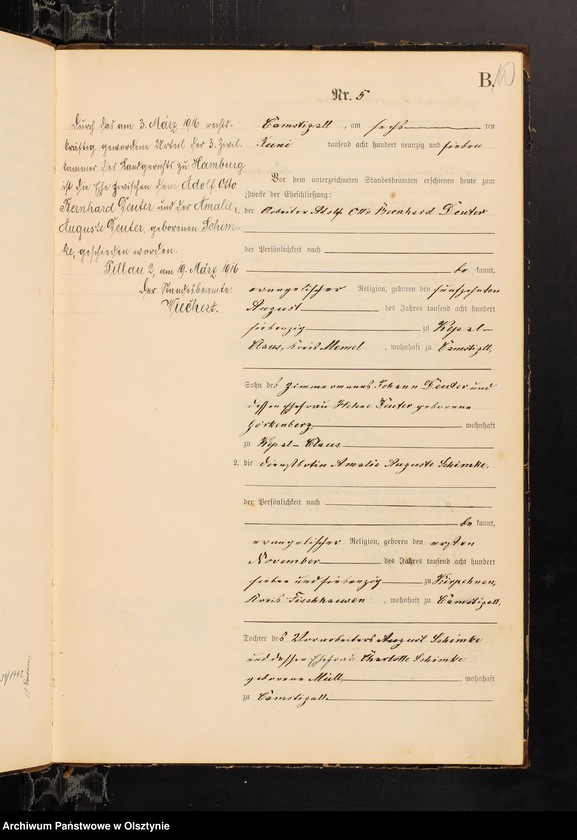 B.
10
Nr. 5
Camstigall, am sechs ten
Juni tausend acht hundert neunzig und sieben
Vor dem unterzeichneten Standesbeamten erschienen heute zum
Zwecke der Eheschließung:
1. der Arbeiter Adolf Otto Bernhard Deuter
der Persönlichkeit nach
be kannt,
evangelischer Religion, geboren den fünfzehnten
August des Jahres tausend acht hundert
siebenzig zu
Claus, Kreis Memel, wohnhaft zu Camstigall,
Sohn des Zimmermanns Johann Deuter und
dessen Ehefrau Helene Deuter geborene
wohnhaft
zu
2. die Dienstbotin Amalie Auguste Schimke,
der Persönlichkeit nach
be kannt,
evangelischer Religion, geboren den ersten
November des Jahres tausend acht hundert
sieben und siebenzig zu Kirpehnen,
Kreis Fischhausen, wohnhaft zu Camstigall,
Tochter des Vorarbeiters August Schimke
und dessen Ehefrau Charlotte Schimke
geborene Müll, wohnhaft
zu Camstigall
Durch das am 3. März 1916 rechts-
kräftig gewordene Urteil der 3. Zivil-
kammer des Landgerichts zu Hamburg
ist die Ehe zwischen dem Adolf Otto
Bernhard Deuter und der Amalie
Auguste Deuter, geborenen Schim-
ke, geschieden worden.
Pillau 2, am 19. März 1916
Der Standesbeamte
Wiechert.
Archiwum Państwowe w Olsztynie